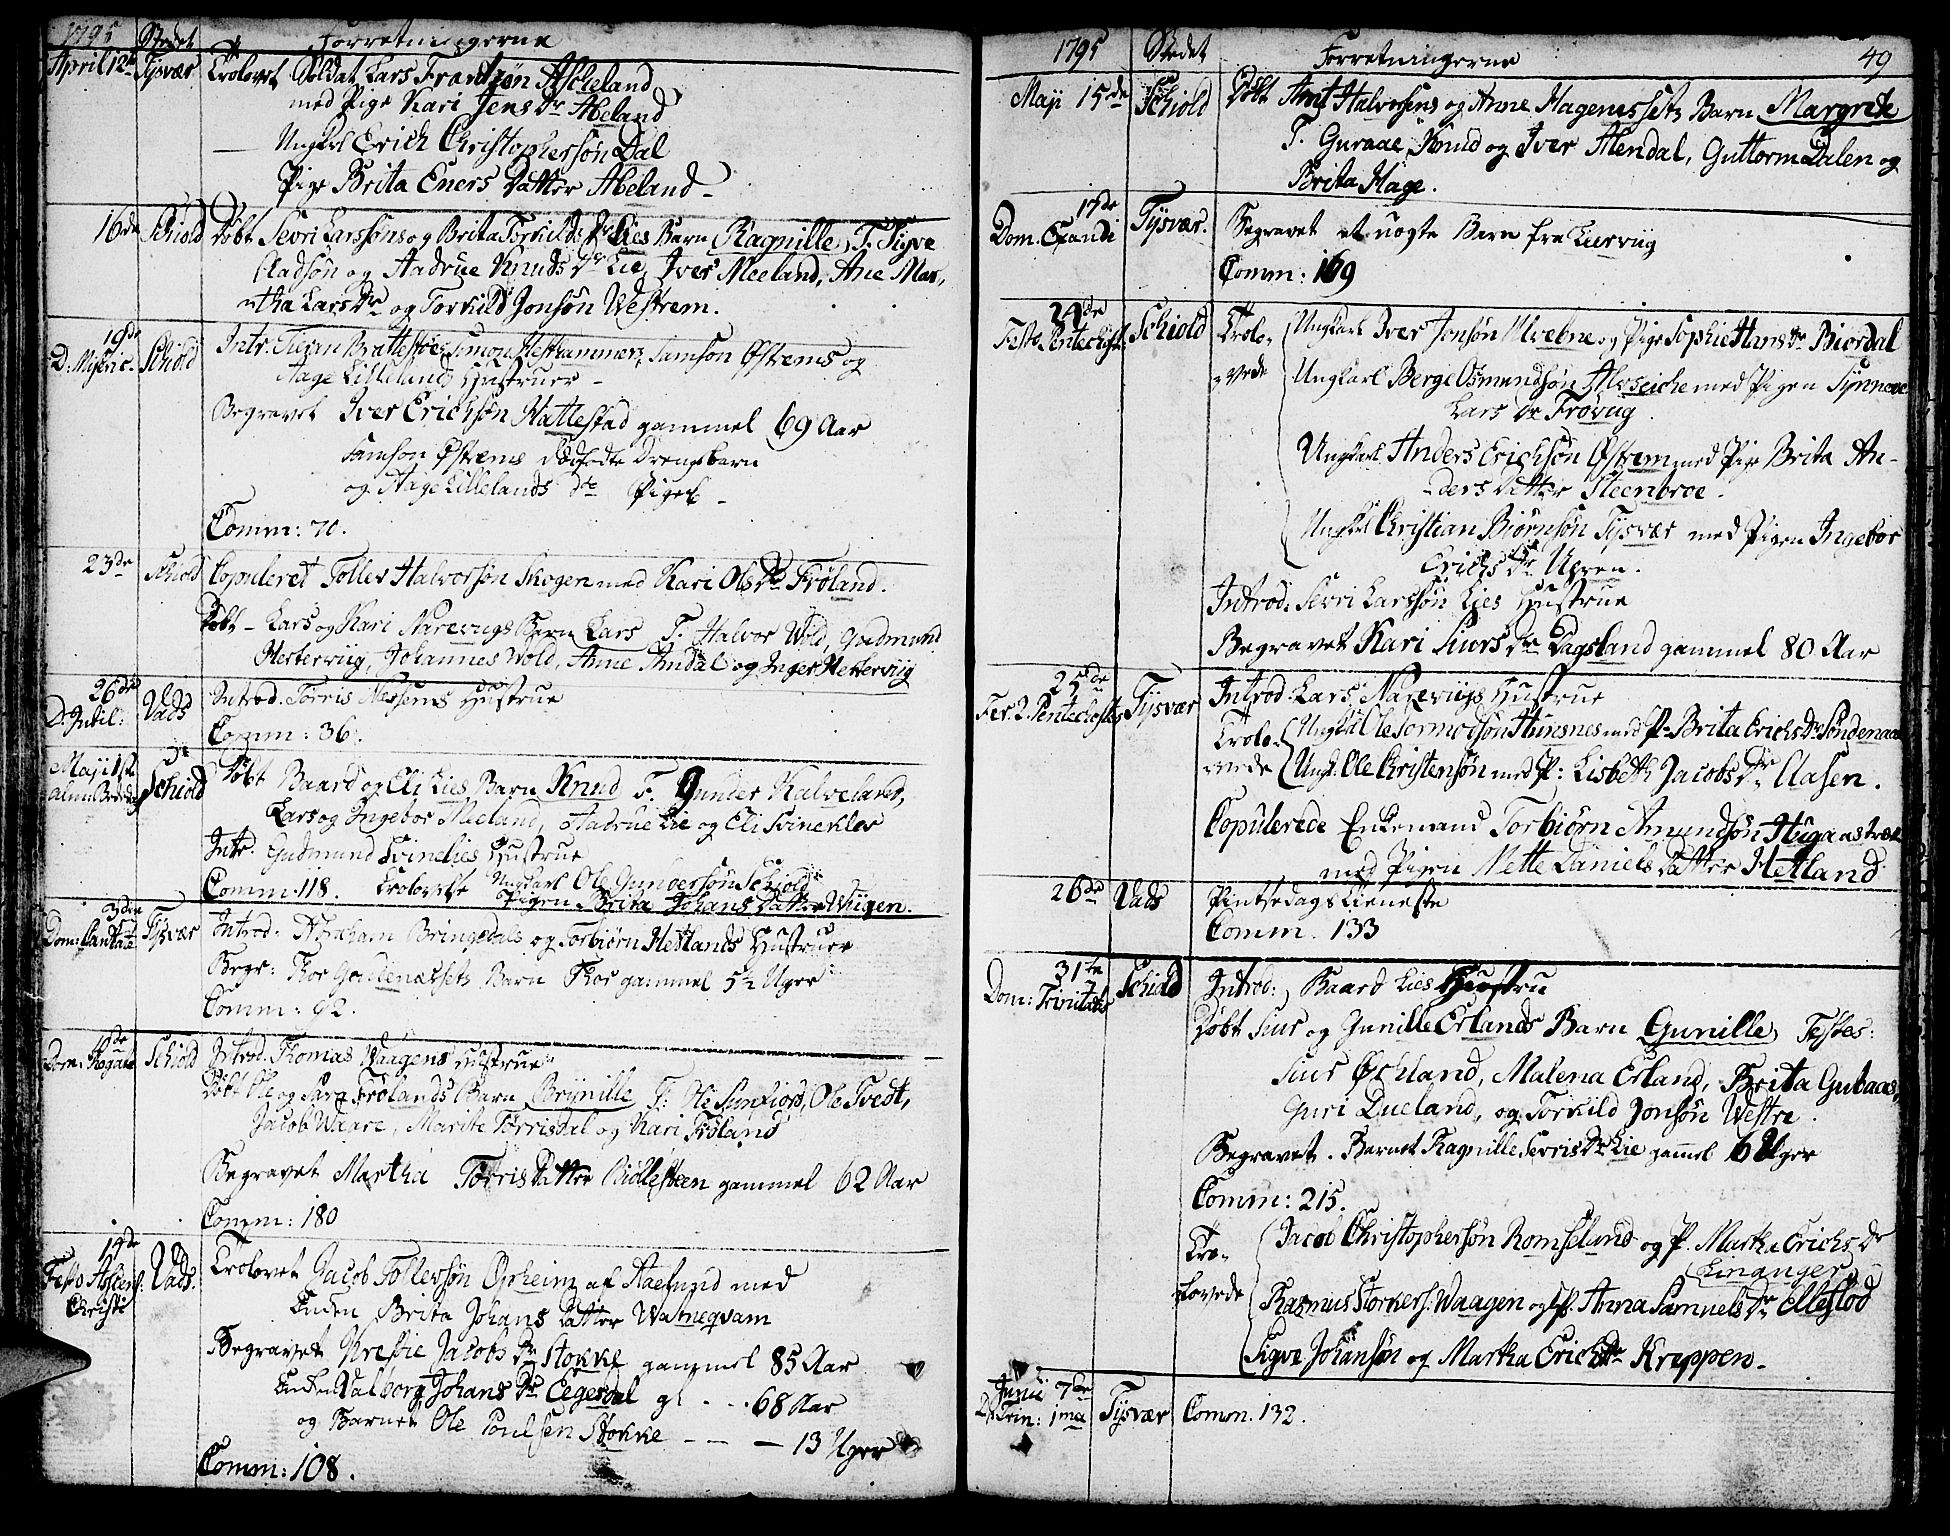 1795 Stedet Forretningerne
April 12te Tysvær Trolovet Soldat Lars Frantzøn Ascheland
med Pige Kari Jens Dr Abeland
— Ungkl Erich Christophersøn Dal
Pige Brita Eners Datter Abeland
16de Schiold Døbt Sevri Larssøns og Brita Torkilds Dr Lies Barn Ragnille, F. Sigve
Aadsøn og Aadrue Knuds Dr Lie, Iver Meeland, Ane Mar,
tha Lars Dr og Torkild Jonsøn Westrem.
19de D: Miseric. Schiold Intr. Tieran Brattesves, Simon Hesthammers, Samson Østrems og
Aage Lilleland Hustruer
Begravet Iver Erichsøn Hattestad gammel 69 Aar
Samson Østrems dødfødte Drengebarn
og Aage Lillelands do Pigeb.
Comm: 70.
23de Schiold Copuleret Tollev Halvorsøn Skogen med Kari Ols Dr Frøland.
Døbt - Lars og Kari Narevugs Barn Lars F. Halvor Wold, Gudmund
Hertervig, Johannes Wold, Anne Andal og Inger Hertervig
26de D. Jubil: Vads Introd. Torris Nessems Hustrue
Comm: 36.
Maji 1ste alm: Bededag Schiold Døbt Baard og Eli Lies Barn Knud F. Gunder Kalveland,
Lars og Ingebor Meeland, Aadrue Lie og Eli Svineklev
Intr. Gudmund Svinelies Hustrue
Comm. 118. Trolovede Ungkarl Ole Gundersøn Schiold
Pigen Brita Johans Datter Wiigen.
3die Dom: Cantate Tysvær Introd. Abraham Bringedals og Torbiørn Hetlands Hustruer
Begr: Thor Goudenæssets Barn Thor gammel 5½ Uger
Comm: 62.
Dom: Rogate Schiold Introd. Thomas Waagens Hustrue
Døbt Ole og Sara Frølands Barn Brynille F: Ole Sunfiord, Ole Tvedt,
Jacob Waare, Marite Torrisdal og Kari Frøland
Begravet Martha Torris Datter Biellesteen gammel 62 Aar
Comm: 180
14de Festo Ascens: Christi Vads. Trolovet Jacob Tollevsøn Opheim af Aaelsund med
Enken Brita Johans Datter Watneqvam
Begravet Krestie Jacobs Dr Stokke gammel 85 Aar
Enken Valborg Johans Dr Eegesdal gl - - 68 Aar
og Barnet Ole Poulsen Stokke - - - 13 Uger
Comm: 108.
1795 Stedet Forretningerne 49
Maji 15de Schiold Døbt Amt Halvorsens og Anne Hagenessets Barn Margrete
F. Guraae, Knud og Iver Alendal, Guttorm Dalen og
Brita Hage.
17de Dom. Exaudi Tysvær. Begravet et uægte Barn fra Liervig
Comm: 169
24de Festo Pentechost. Schiold Trolo-
vede Ungkarl Iver Jonsøn Alvebne og Pige Sophie Hans Dr Biordal
Ungkarl Berge Osmundsøn Alvseiche med Pigen Synneve
Lars Dr Frøvug
Ungkarl Anders Erichsøn Østrem med Pige Brita An-
ders Datter Steenbroe.
Ungkl Christian Biørnsøn Tysvær med Pigen Ingebor
Erichs Dr Upren.
Introd: Sevri Larssøn Lies Hustrue
Begravet Kari Siurs Dr Dagsland gammel 80 Aar
25de Fer. 2. Pentechostes Tysvær Introd: Lars Narevigs Hustrue
Trolo-
vede Ungkl Ole Tormodsøn Hunsnes med P. Brita Erichs Dr Søndenaae
Ungk. Ole Christensøn med P: Lisbeth Jacobs Dr Aasen.
Copulerede Enkemand Torbiørn Amundsøn Hugaastræt
med Pigen Mette Daniels Datter Hetland
26de Vads Pintsedags Tieneste
Comm. 133
31te Dom: Trinitatis Schiold Introd: Baard Lies Hustru
Døbt Siur og Gunille Erlands Barn Gunille, Testes:
Siur Øchland, Malena Erland, Brita Gubaas,
Guri Dueland, og Torkild Jonsøn Westre.
Begravet. Barnet Ragnille Sevris Dr Lie gamel 6 Uger
Comm: 215.
Tro-
lovede Jacob Christophersøn Romseland og P. Martha Erichs Dr
Linanger
Rasmus Storkers: Waagen og P. Anna Samuels Dr Ellestod
Sigve Johansøn og Martha Erichs Dr Kreppen.
Junii 7de D. Trin: 1ma Tysvær Comm. 132.